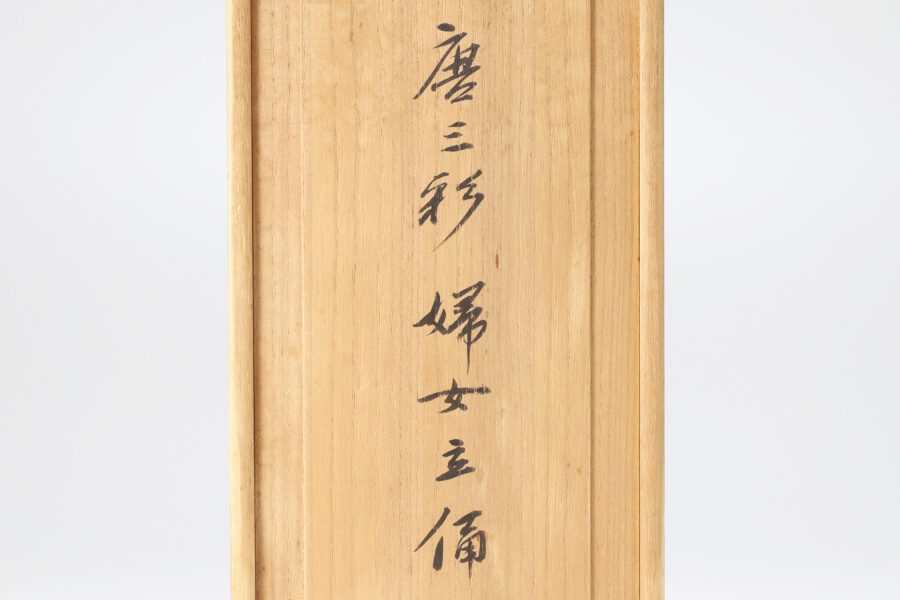 唐三彩 婦女立俑